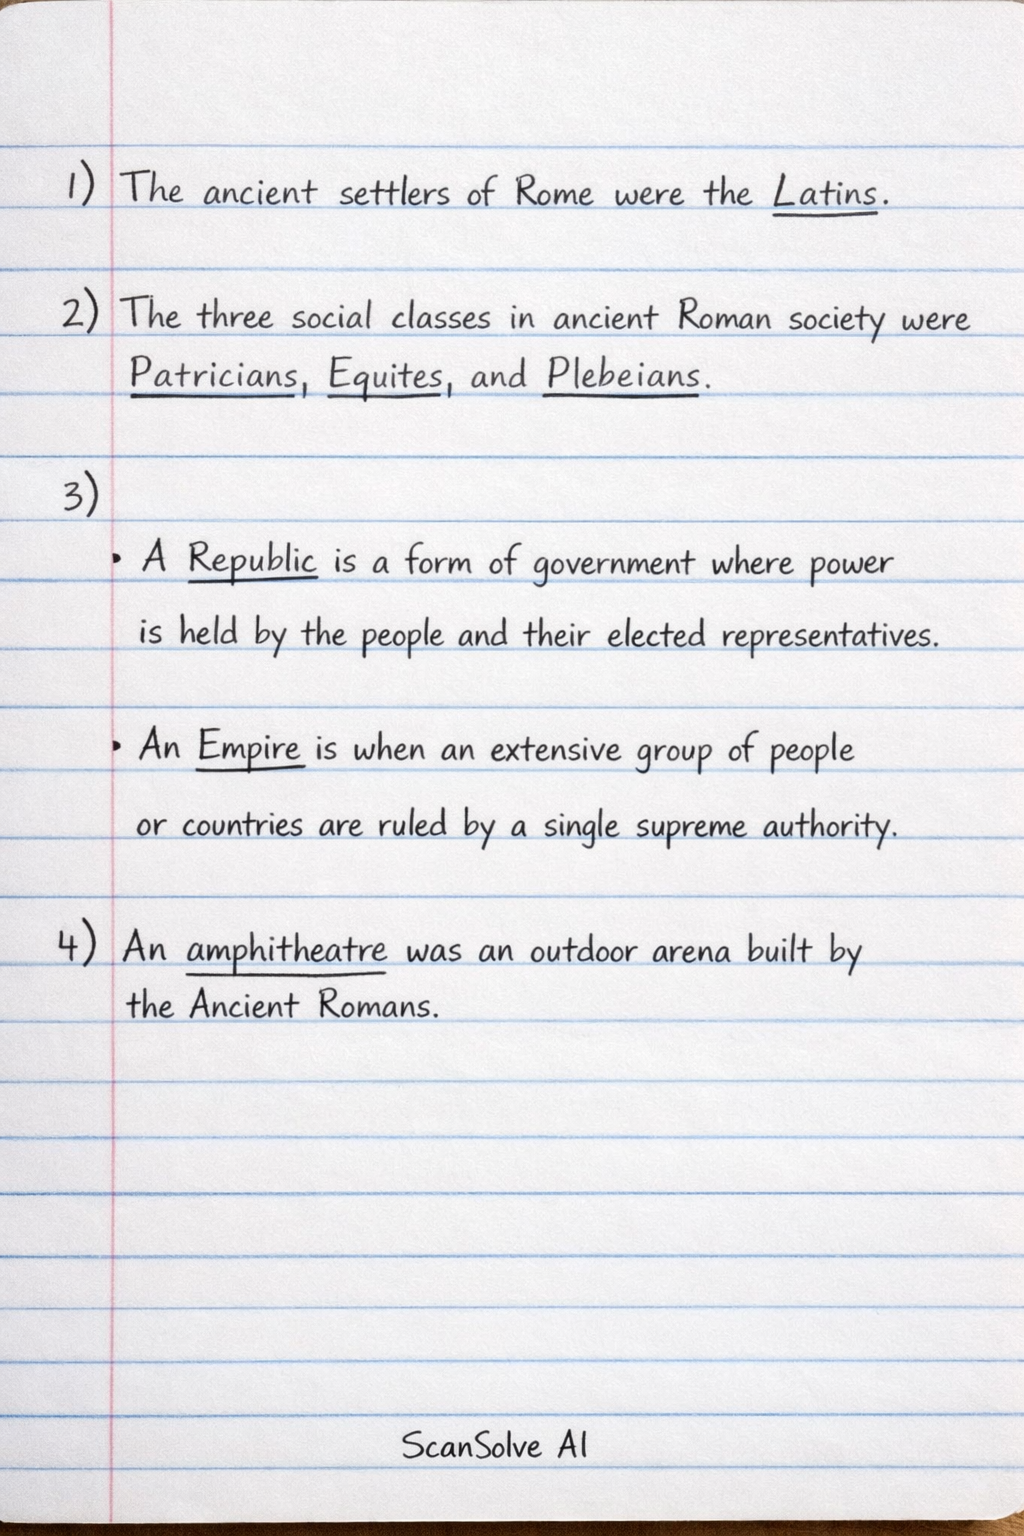 1) The ancient settlers of Rome were the Latins.
2) The three social classes in ancient Roman society were
Patricians, Equites, and Plebeians.
3)
• A Republic is a form of government where power
is held by the people and their elected representatives.
• An Empire is when an extensive group of people
or countries are ruled by a single supreme authority.
4) An amphitheatre was an outdoor arena built by
the Ancient Romans.
ScanSolve AI